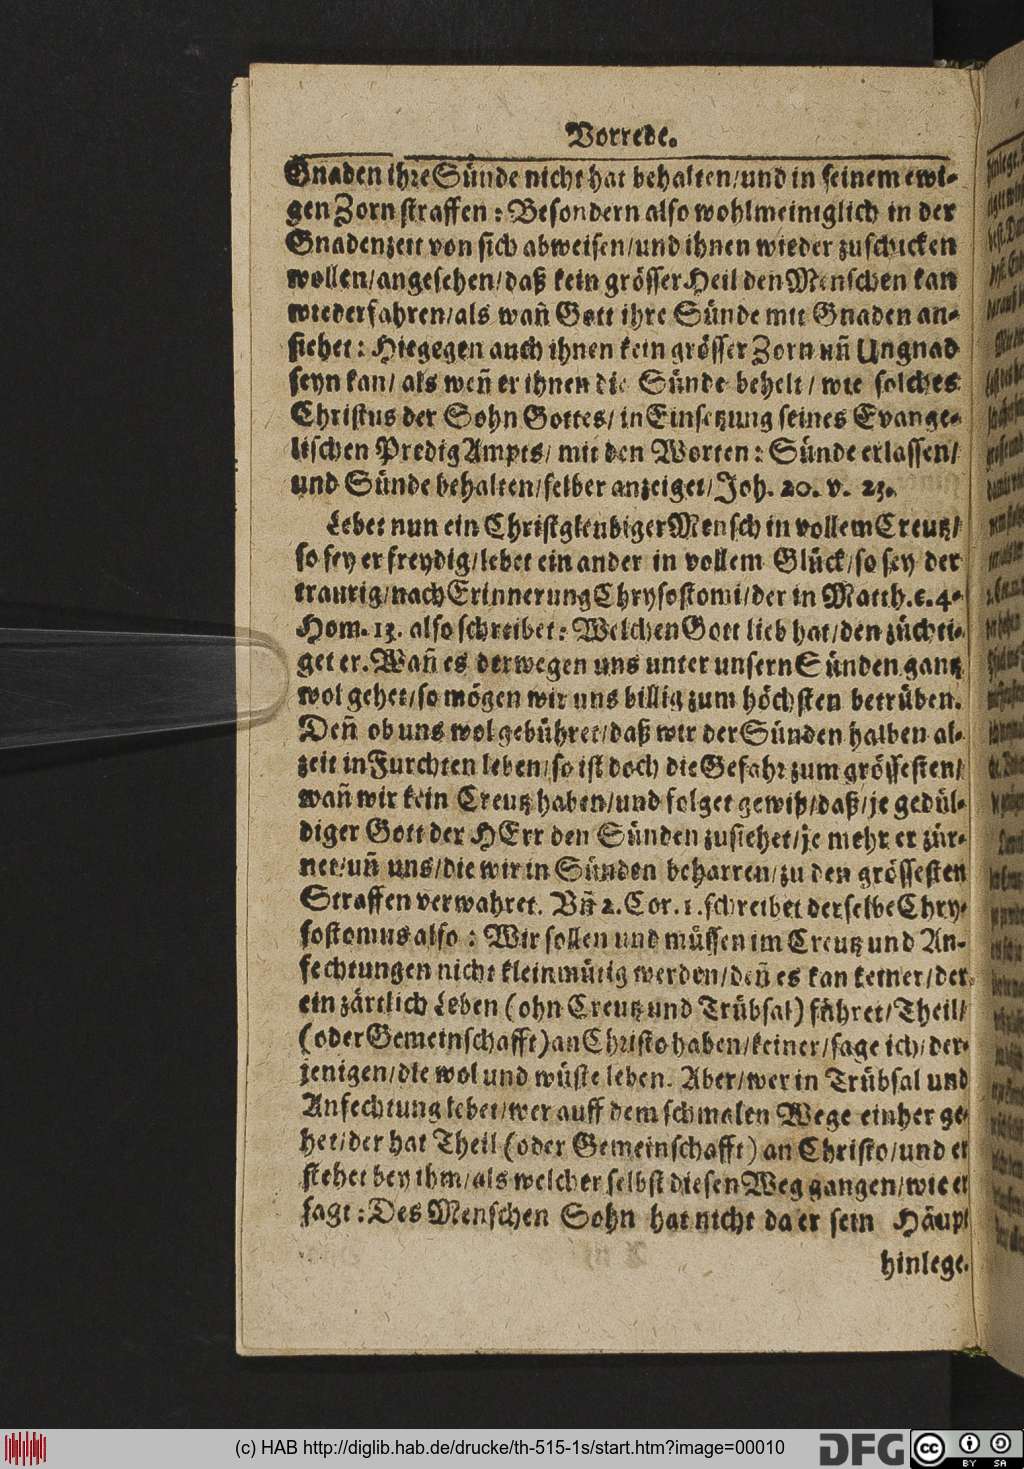 Vorrede.
Gnaden ihre Sünde nicht hat behalten/und in seinem ewi-
gen Zorn straffen : Besondern also wohlmeiniglich in der
Gnadenzeit von sich abweisen/und ihnen wieder zuschicken
wollen/angesehen/daß kein grösser Heil den Menschen kan
wiederfahren/als wañ Gott ihre Sünde mit Gnaden an-
siehet : Hiegegen auch ihnen kein grösser Zorn uñ Ungnad
seyn kan/ als weñ er ihnen die Sünde behelt / wie solches
Christus der Sohn Gottes/ in Einsetzung seines Evange-
lischen Predig Ampts/ mit den Worten : Sünde erlassen/
und Sünde behalten/selber anzeiget/Joh. 20. v. 23.
Lebet nun ein Christgleubiger Mensch in vollem Creutz/
so sey er freydig/lebet ein ander in vollem Glück/so sey der
traurig/nach Erinnerung Chrysostomi/der in Matth. c. 4.
Hom. 13. also schreibet : Welchen Gott lieb hat/den züchti-
get er. Wañ es derwegen uns unter unsern Sünden gantz
wol gehet/so mögen wir uns billig zum höchsten betrüben.
Deñ ob uns wol gebühret/daß wir der Sünden halben al-
zeit in Furchten leben/so ist doch die Gefahr zum grössesten/
wañ wir kein Creutz haben/und folget gewiß/daß/je gedül-
diger Gott der HErr den Sünden zusiehet/je mehr er zür-
net/uñ uns/die wir in Sünden beharren/zu den grössesten
Straffen verwahret. Vñ 2. Cor. 1. schreibet derselbe Chry-
sostomus also : Wir sollen und müssen im Creutz und An-
fechtungen nicht kleinmütig werden/deñ es kan keiner/der
ein zärtlich Leben (ohn Creutz und Trübsal) führet/Theil/
(oder Gemeinschafft) an Christo haben/keiner/sage ich/der-
jenigen/die wol und wüste leben. Aber/wer in Trübsal und
Anfechtung lebet/wer auff dem schmalen Wege einher ge-
het/der hat Theil (oder Gemeinschafft) an Christo/und er
stehet bey ihm/als welcher selbst diesen Weg gangen/wie er
sagt : Des Menschen Sohn hat nicht da er sein Häupt
hinlege.
(c) HAB http://diglib.hab.de/drucke/th-515-1s/start.htm?image=00010
DFG
cc BY SA